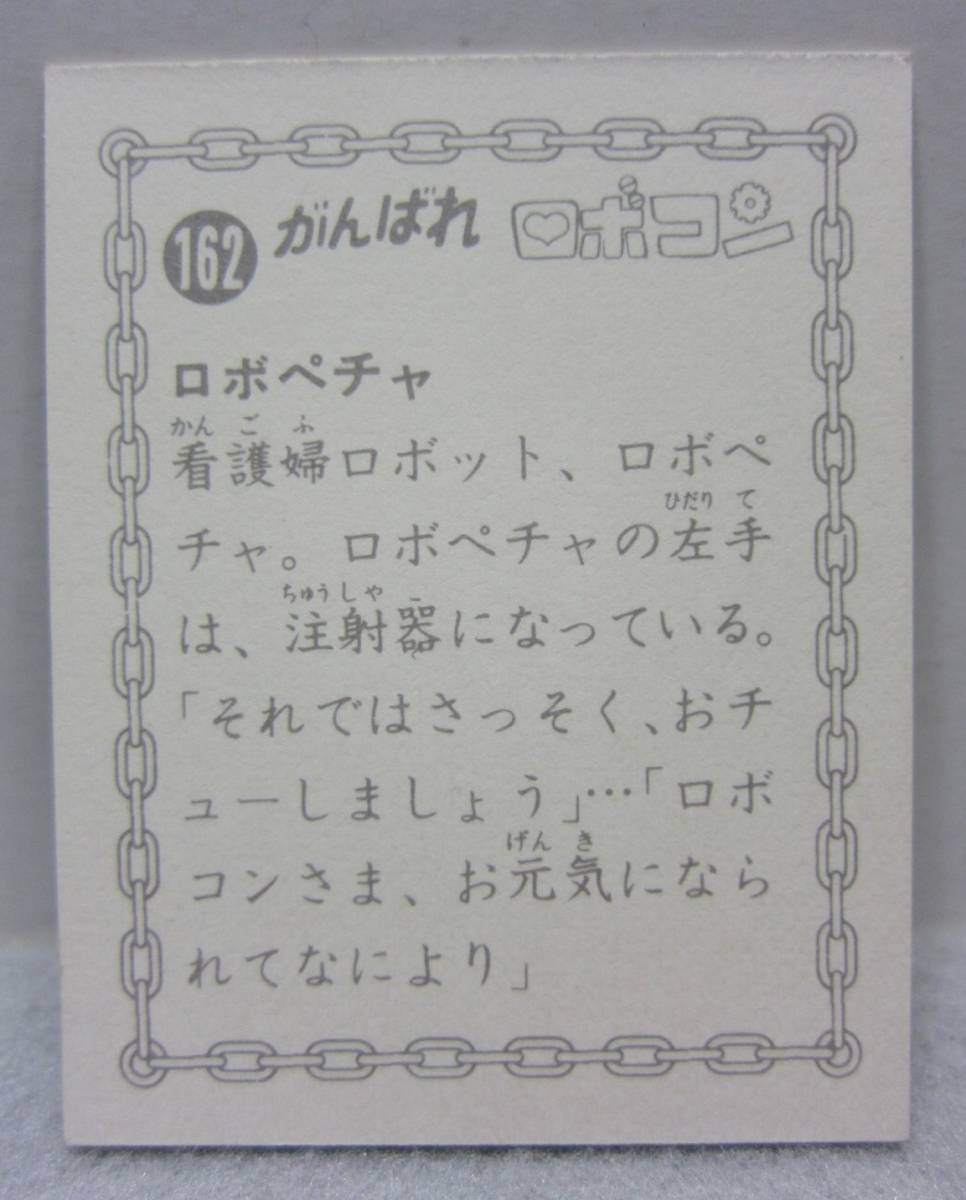 162 がんばれ ロボコン
ロボペチャ
かんごふ
看護婦ロボット、ロボペ
ひだりて
チャ。ロボペチャの左手
ちゅうしゃ
は、注射器になっている。
「それではさっそく、おチ
ューしましょう」…「ロボ
げんき
コンさま、お元気になら
れてなにより」